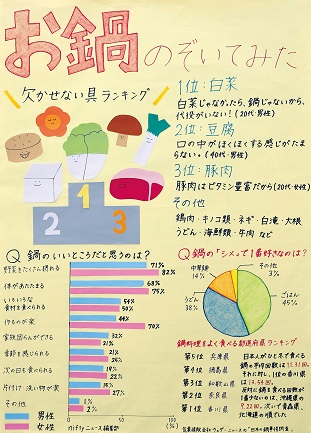 お鍋のぞいてみた
欠かせない具ランキング
1位:白菜
白菜じゃなかったら、鍋じゃないから、
代役がいない!(20代・男性)
2位:豆腐
口の中がほくほくする感じがたま
らない。(40代・男性)
3位:豚肉
豚肉はビタミン豊富だから(20代・女性)
その他
鶏肉・キノコ類・ネギ・白滝・大根
うどん・海鮮類・牛肉 など
1
2
3
Q 鍋のいいところだと思うのは?
野菜をたくさん摂れる
71%
82%
体があたたまる
68%
75%
いろいろな
食材を食べられる
54%
50%
作るのが楽
44%
70%
家族団らんができる
32%
21%
季節を感じられる
21%
次の日も食べられる
21%
片付け・洗い物が楽
27%
その他
1%
2%
男性
女性
Q 鍋の「シメ」で1番好きなのは?
中華麺
14%
その他
3%
うどん
38%
ごはん
45%
鍋料理をよく食べる都道府県ランキング
第1位 兵庫県
第2位 徳島県
第3位 和歌山県
第4位 奈良県
第5位 香川県
日本人がひと冬で食べる
鍋の平均回数は11.31回。
それに対し、1位の
反対に鍋を食べる回数が
1番少ないのは、沖縄県の
9.22回。次いで青森県、
北海道の順でした